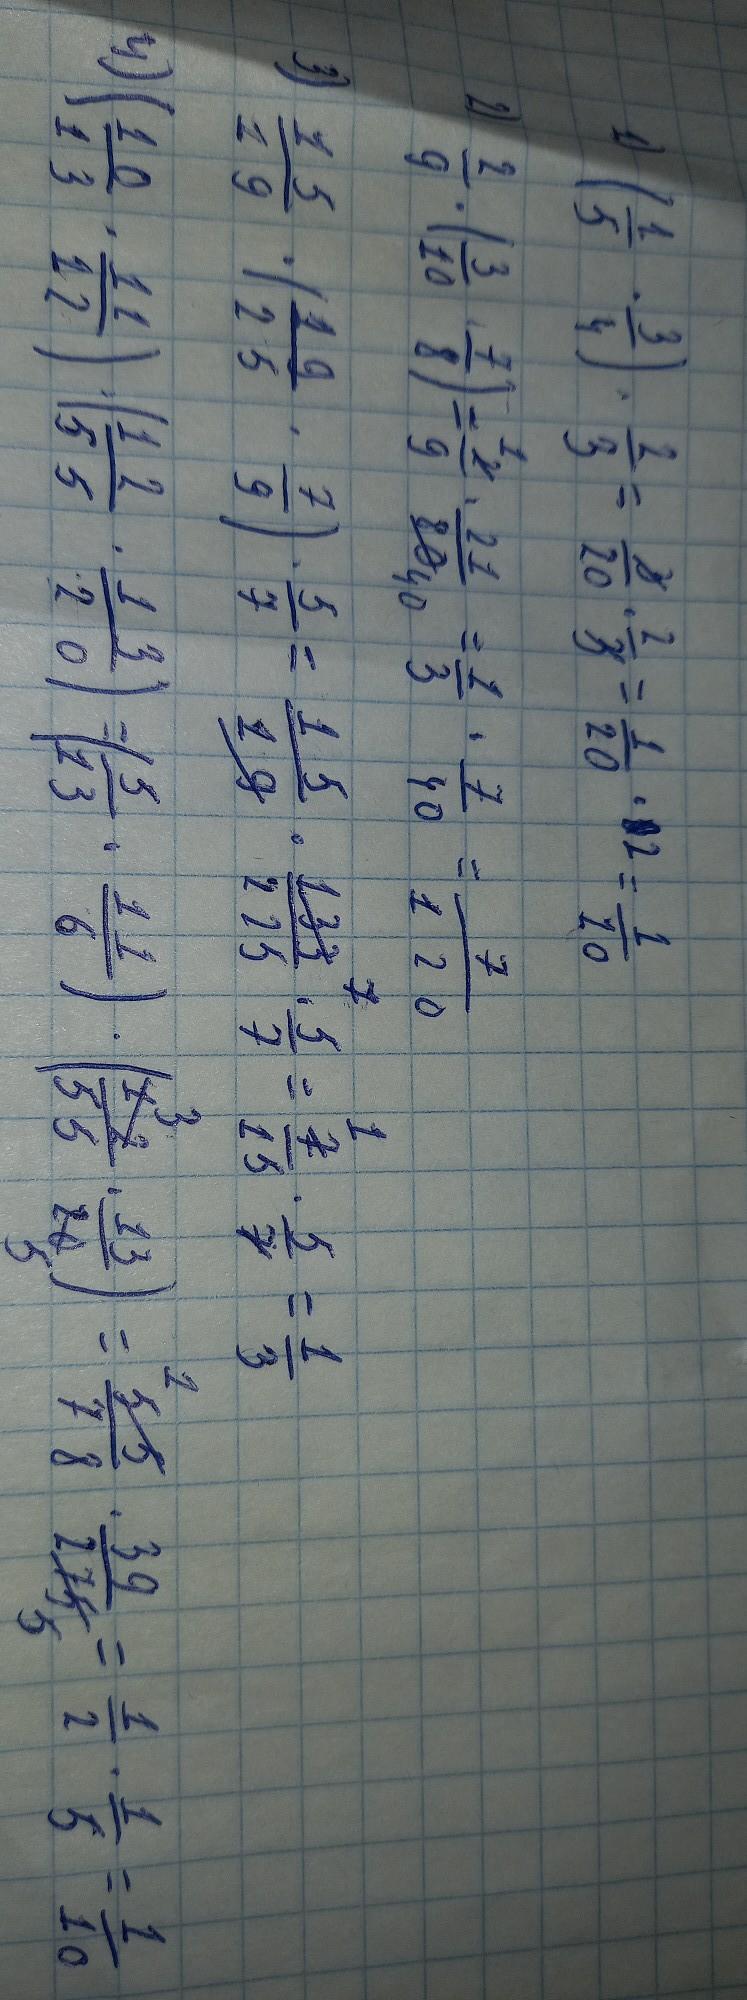 1) (1/5 · 3/4) · 2/3 = 3/20 · 2/3 = 1/20 · 2 = 1/10
2) 2/9 · (3/10 · 7/8) = 2/9 · 21/80 = 1/3 · 7/40 = 7/120
3) 15/19 · (19/25 · 7/9) · 5/7 = 15/19 · 133/225 · 5/7 = 7/15 · 5/7 = 1/3
4) (10/13 · 11/12) · (12/55 · 13/20) = (5/13 · 11/6) · (12/55 · 13/20) = 55/78 · 39/275 = 1/2 · 1/5 = 1/10